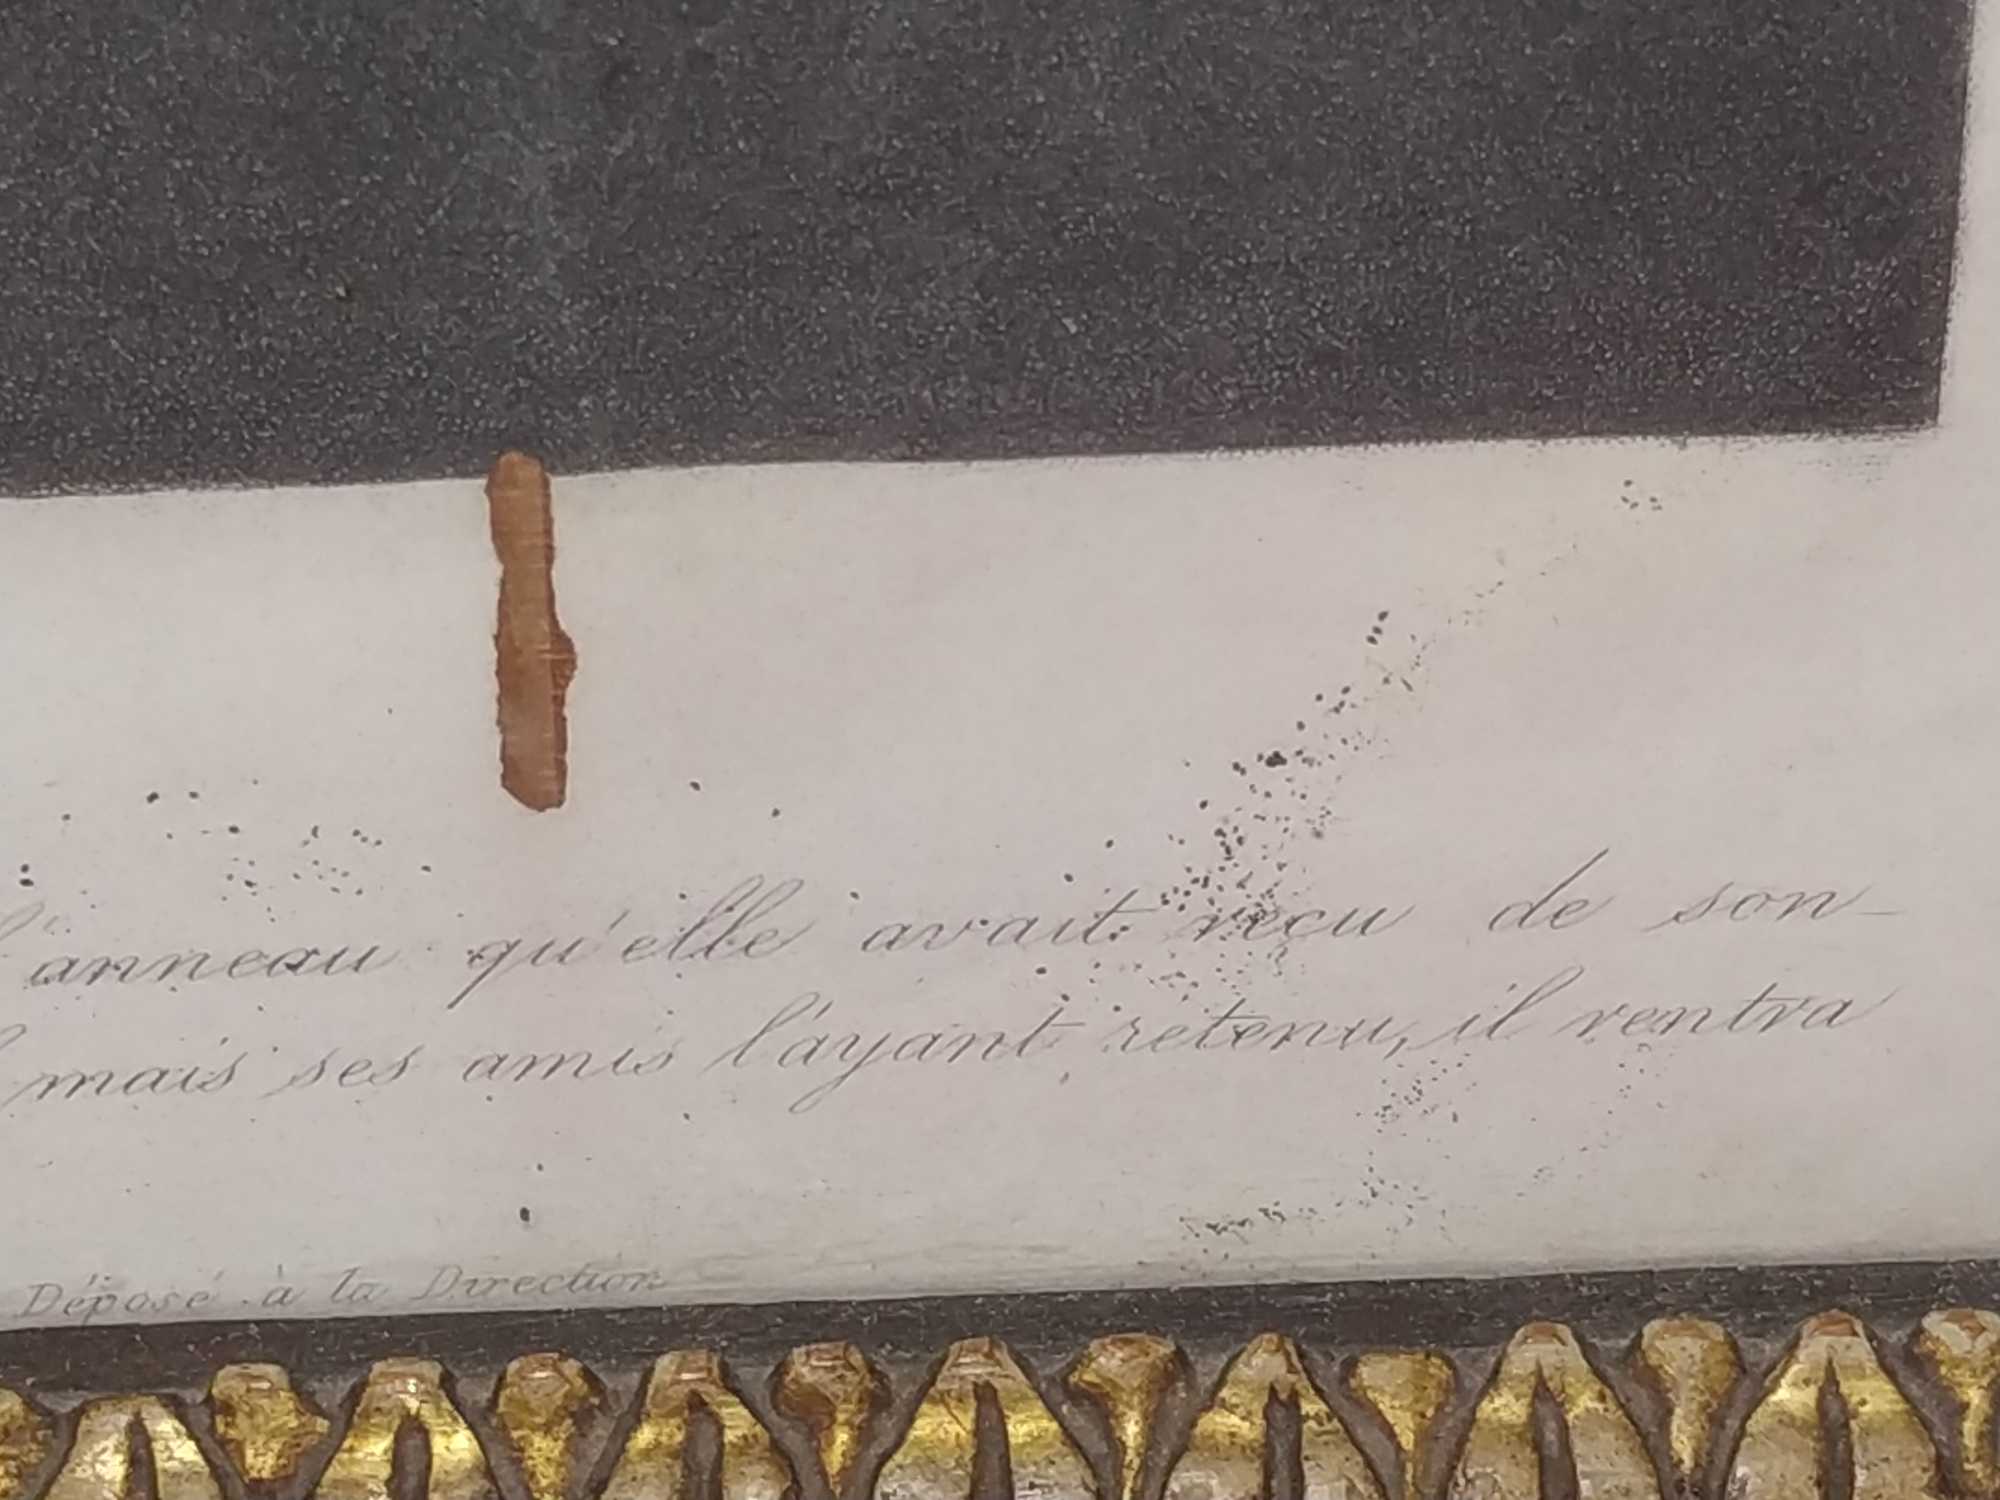 l'anneau qu'elle avait recu de son
mais ses amis l'ayant retenu, il rentra
Déposé à la Direction